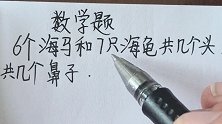 数学题
6个海马和7只海龟共几个头
共几个鼻子.